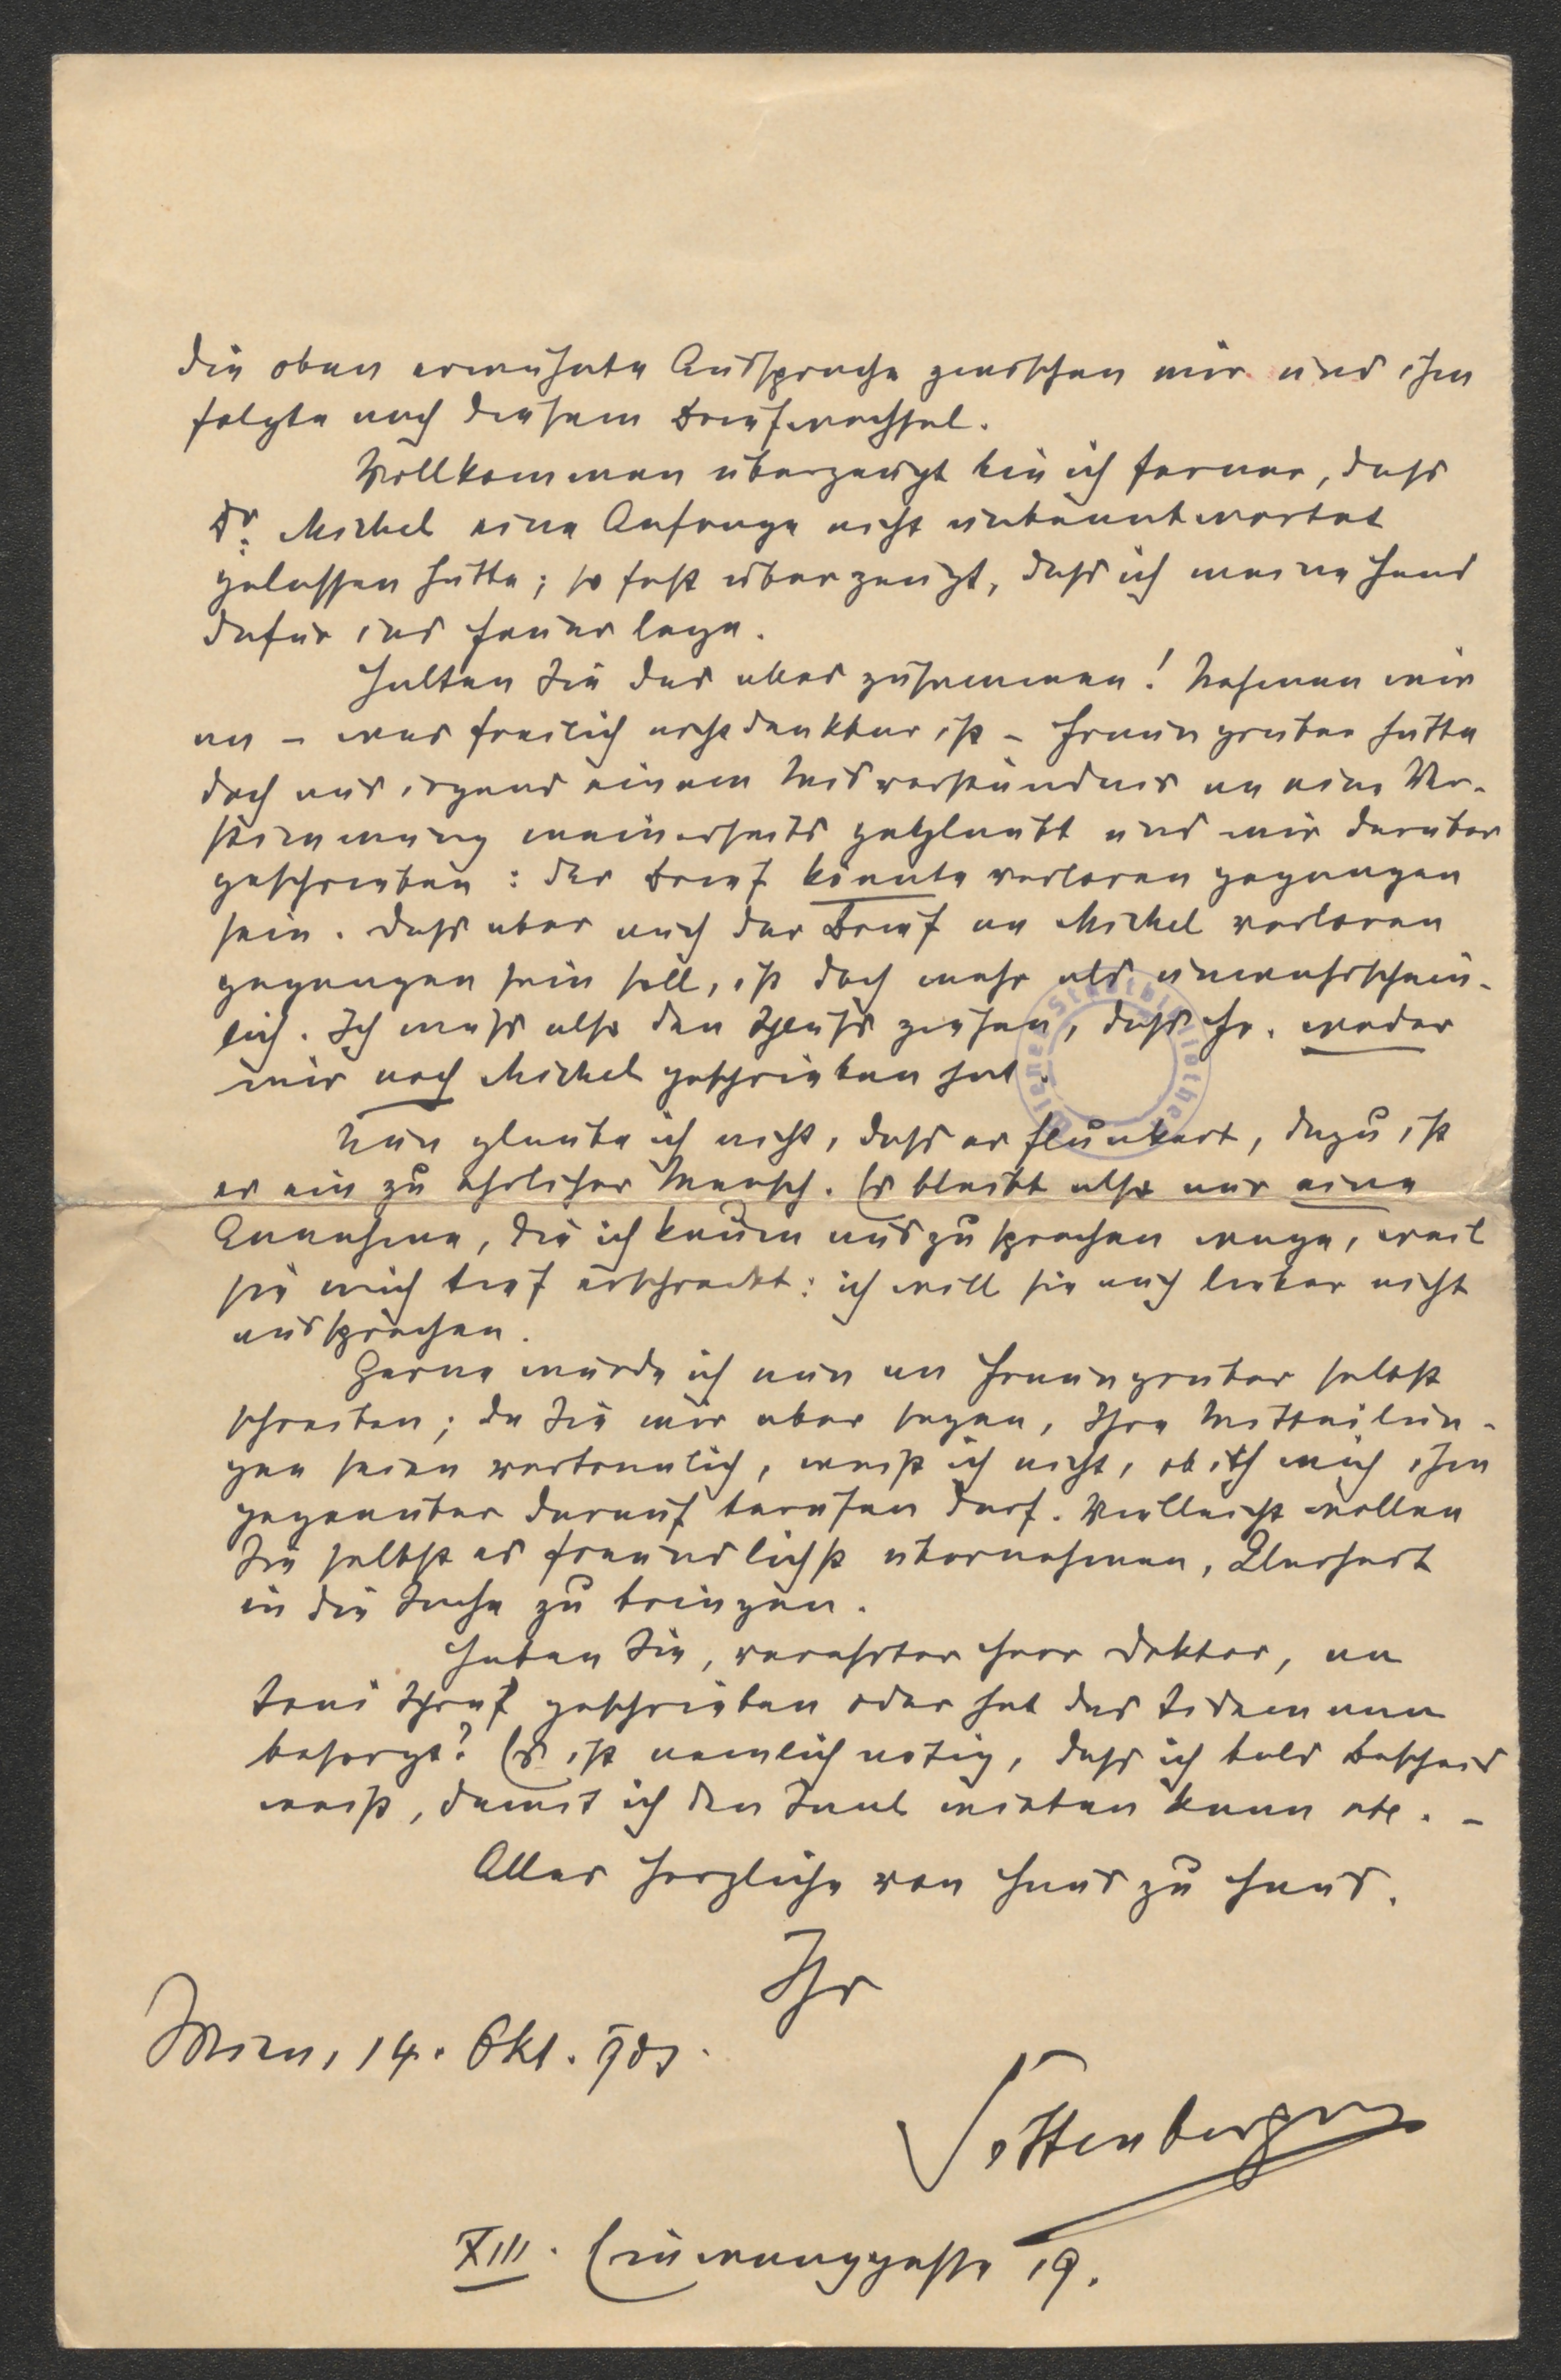 die oben erwähnte Aussprache zwischen mir und ihm
folgte nach diesem Briefwechsel.
Vollkommen überzeugt bin ich ferner, dass
Dr. Michel eine Anfrage nicht unbeantwortet
gelassen hätte; so fest überzeugt, dass ich meine Hand
dafür ins Feuer lege.
Halten Sie das alles zusammen! Nehmen wir
an – was freilich nicht denkbar ist – Fraungruber hätte
doch aus irgend einem Misverständnis an eine Ver-
stimmung meinerseits geglaubt und mir darüber
geschrieben: der Brief könnte verloren gegangen
sein. Dass aber auch der Brief an Michel verloren
gegangen sein soll, ist doch mehr als unwahrschein-
lich. Ich muss also den Schluss ziehen, dass Fr. weder
mir noch Michel geschrieben hat.
Nun glaube ich nicht, dass er flunkert, dazu ist
er ein zu ehrlicher Mensch. Es bleibt also nur eine
Annahme, die ich kaum auszusprechen wage, weil
sie mich tief erschreckt: ich will sie auch lieber nicht
aussprechen.
Gerne würde ich nun an Fraungruber selbst
schreiben; da Sie mir aber sagen, Ihre Mitteilun-
gen seien vertraulich, weiß ich nicht, ob ich mich ihm
gegenüber darauf berufen darf. Vielleicht wollen
Sie selbst es freundlichst übernehmen, Klarheit
in die Sache zu bringen.
Haben Sie, verehrter Herr Doktor, an
Toni Schruf geschrieben oder hat das
besorgt? Es ist nämlich nötig, dass ich bald Bescheid
weiß, damit ich den Saal mieten kann etc. –
Alles Herzliche von Haus zu Haus.
Ihr
Wien, 14. Okt. 905.
Sottenberger
XIII. gasse 19.
Wiener Stadtbibliothek